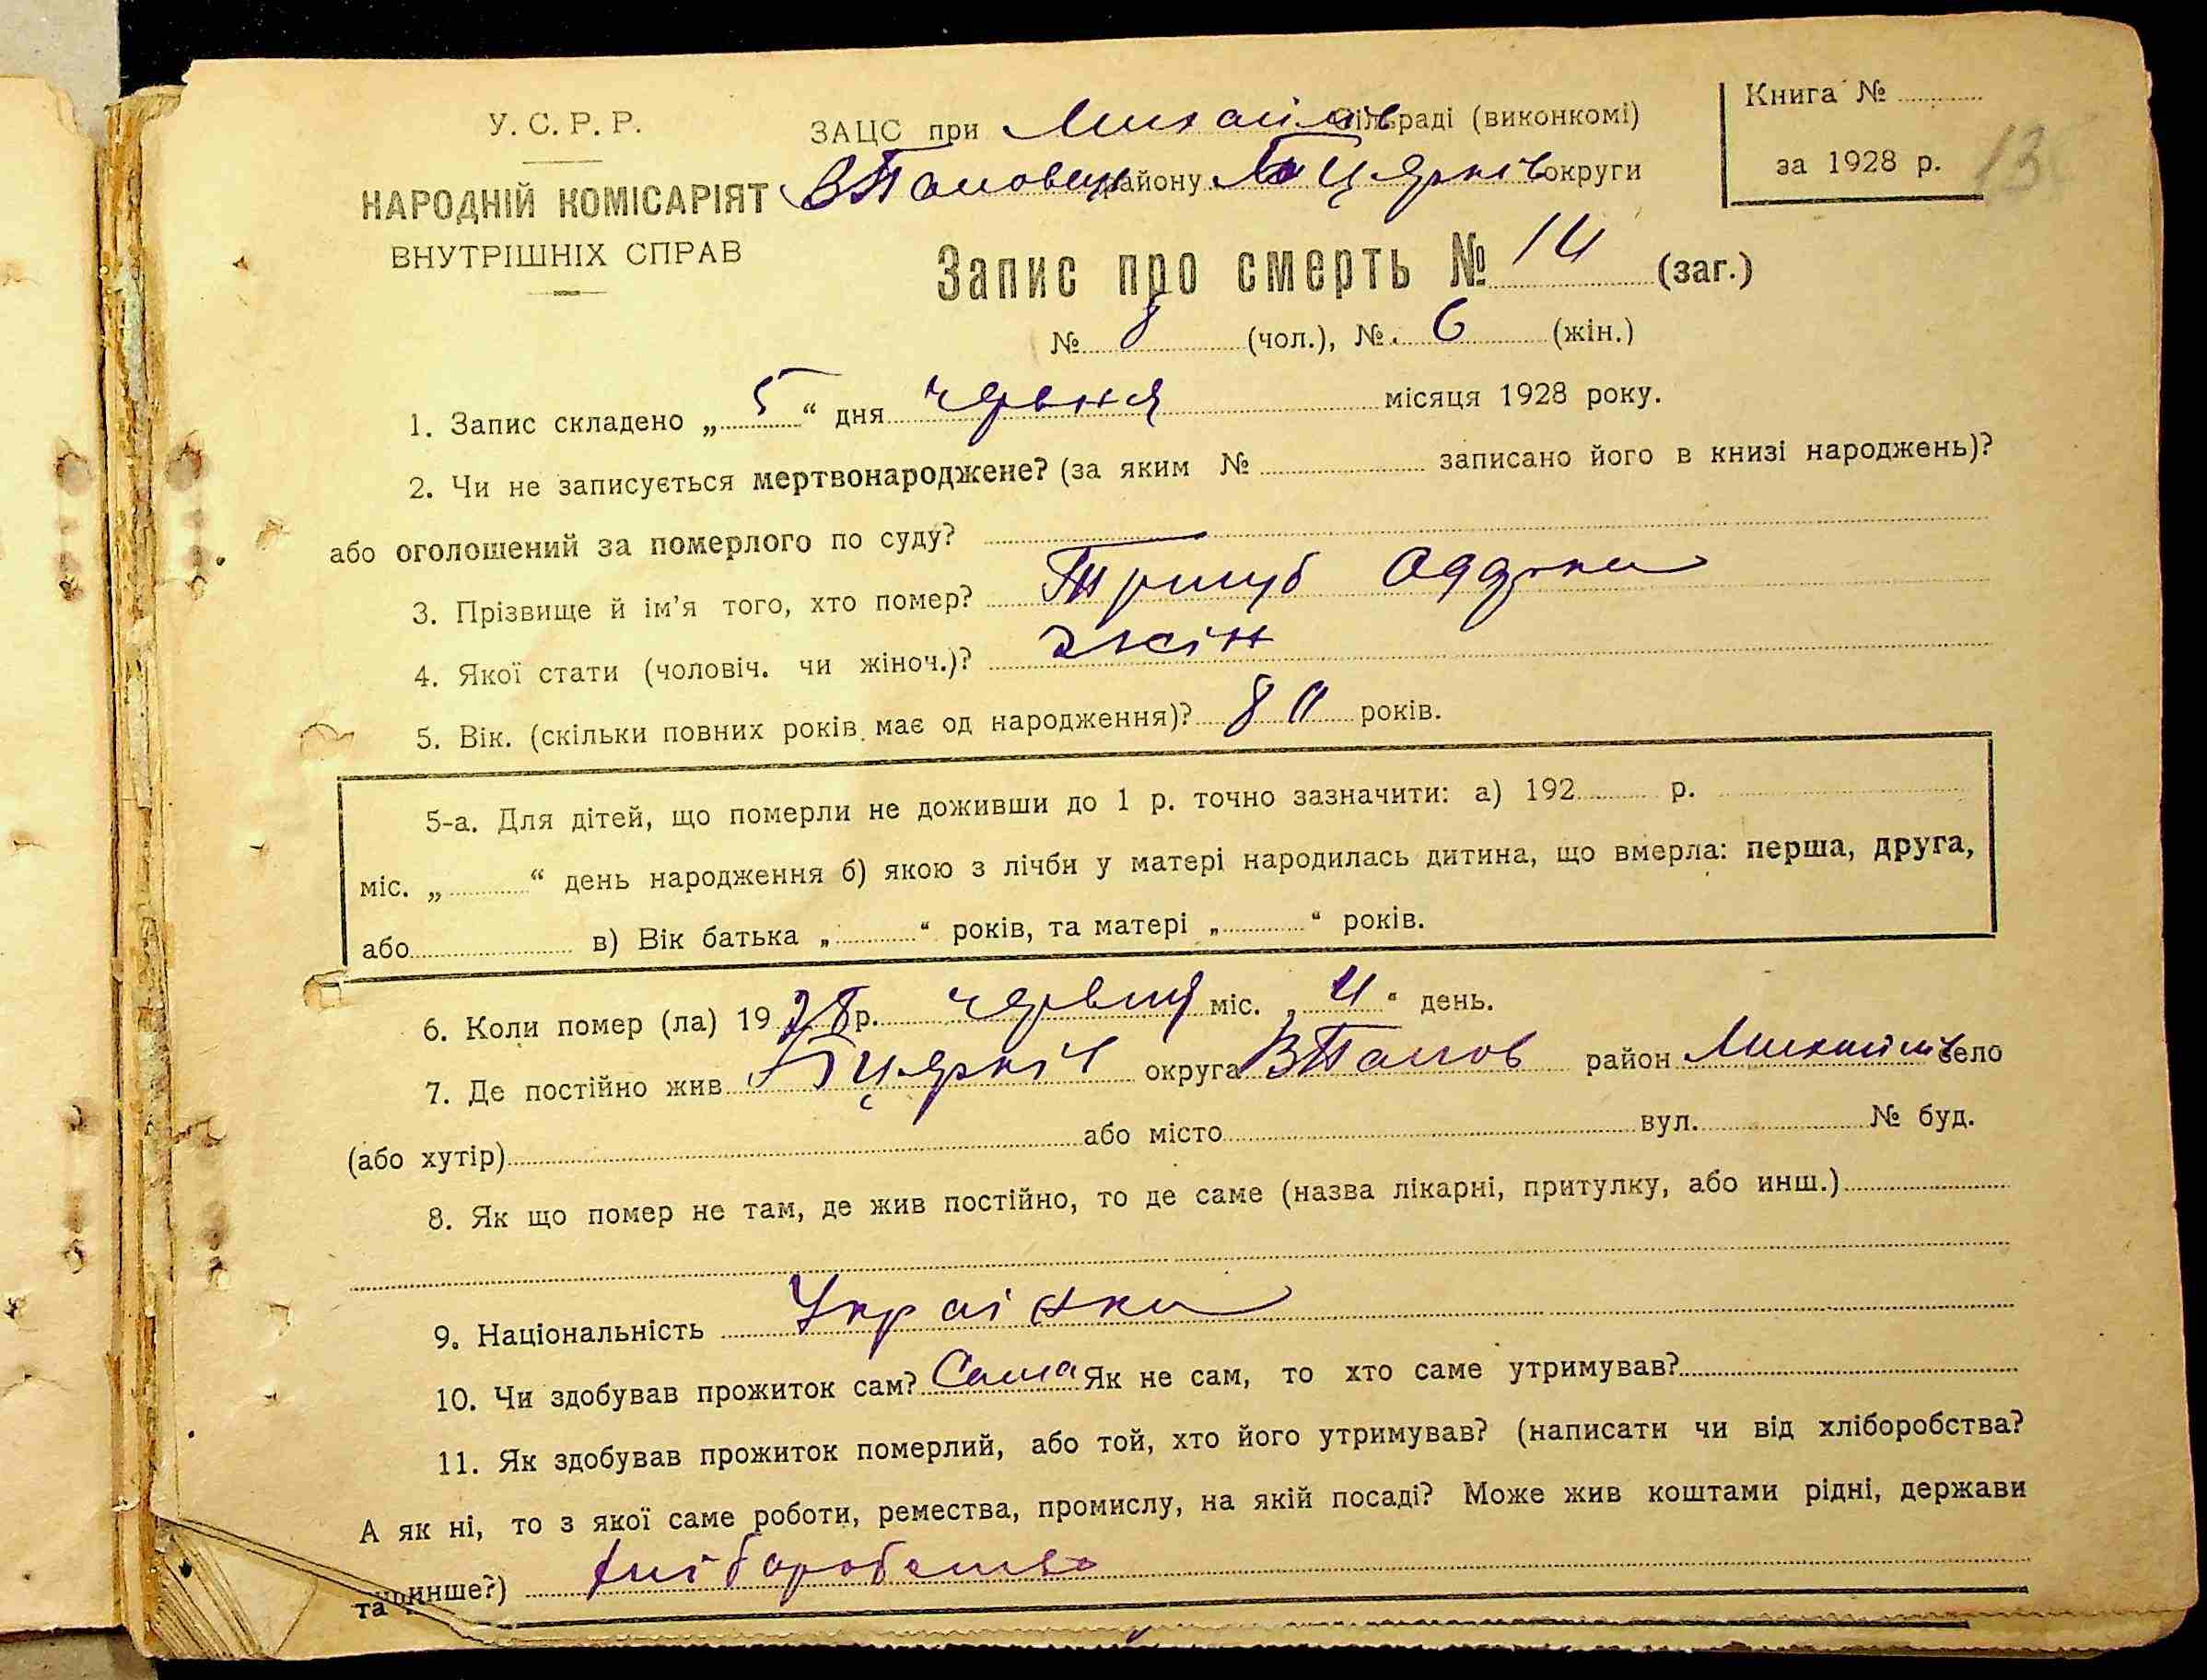 У. С. Р. Р.
НАРОДНІЙ КОМІСАРІЯТ
ВНУТРІШНІХ СПРАВ
ЗАЦС при Михайлів сільраді (виконкомі)
району Б Церків округи
Книга №
за 1928 р. 13
Запис про смерть № 14 (заг.)
№ 8 (чол.), № 6 (жін.)
1. Запис складено „ 5 “ дня червня місяця 1928 року.
2. Чи не записується мертвонароджене? (за яким № записано його в книзі народжень)?
або оголошений за померлого по суду?
3. Прізвище й ім’я того, хто помер? Тригуб
4. Якої стати (чоловіч. чи жіноч.)? жін
5. Вік. (скільки повних років має од народження)? 80 років.
5-а. Для дітей, що померли не доживши до 1 р. точно зазначити: а) 192 р.
міс. „ “ день народження б) якою з лічби у матері народилась дитина, що вмерла: перша, друга,
або в) Вік батька „ “ років, та матері „ “ років.
6. Коли помер (ла) 1928 р. червня міс. „ 4 “ день.
7. Де постійно жив Б Церків округа район Михайлів село
(або хутір) або місто вул. № буд.
8. Як що помер не там, де жив постійно, то де саме (назва лікарні, притулку, або инш.)
9. Національність Українка
10. Чи здобував прожиток сам? Сама Як не сам, то хто саме утримував?
11. Як здобував прожиток померлий, або той, хто його утримував? (написати чи від хліборобства?
А як ні, то з якої саме роботи, ремества, промислу, на якій посаді? Може жив коштами рідні, держави
инше?) хліборобство